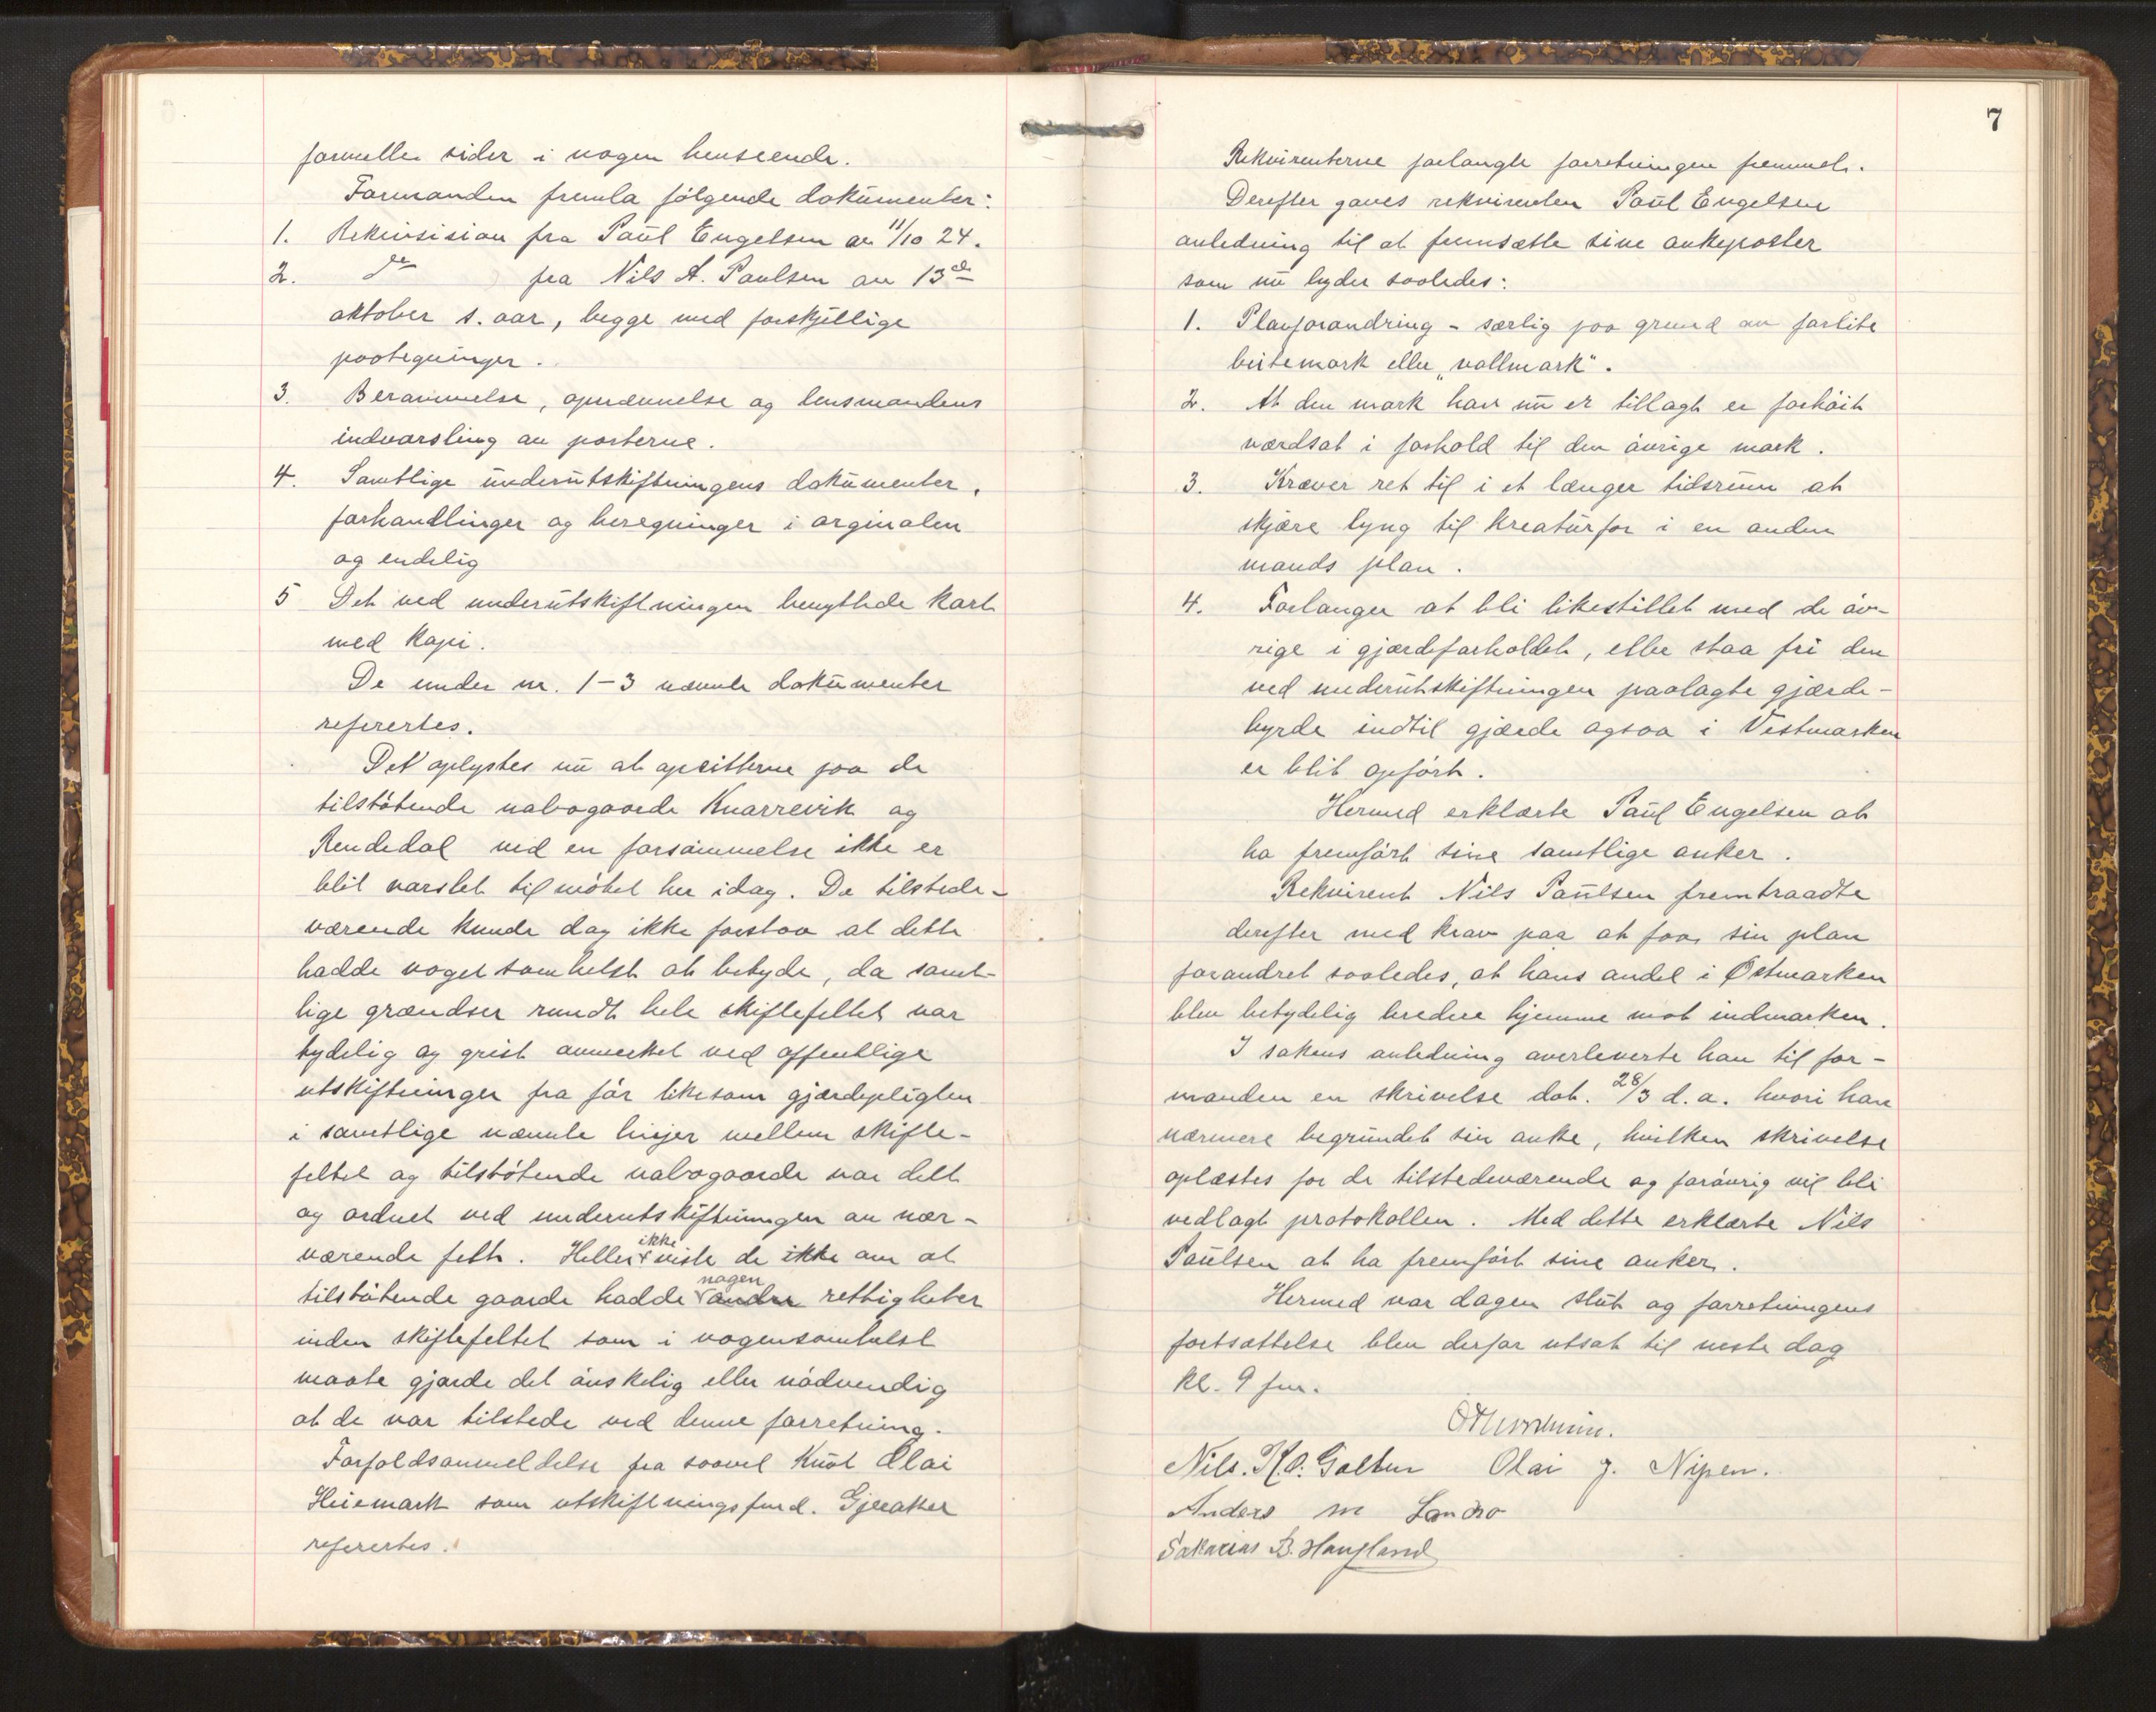 formelle sider i nogen henseende.
Formanden fremla følgende dokumenter:
1. Rekvisision fra Paul Engelsen av 11/10 24.
2. do fra Nils A. Paulsen av 13de
oktober s. aar, begge med forskjellige
paategninger.
3. Berammelse, opnævnelse og lensmandens
indvarsling av parterne.
4. Samtlige underutskiftningens dokumenter,
forhandlinger og beregninger i orginalen
og endelig
5 Det ved underutskiftningen benyttede kart
med kopi.
De under nr. 1-3 nævnte dokumenter
refererte​s.
Det oplystes nu at opsitterne paa de
tilstøtende nabogaarde Knarrevik og
Rendedal ved en forsømmelse ikke er
blit varslet til møtet her idag. De tilstede-
værende kunde dog ikke forstaa at dette
hadde noget somhelst at betyde, da samt-
lige grændser rundt hele skiftefeltet var
tydelig og greit avmerket ved offentlige
utskiftninger fra før likesom gjærdepligten
i samtlige nævnte linjer mellem skifte-
feltet og tilstøtende nabogaarde var delt
og ordnet ved underutskiftningen av nær-
værende felt. Heller ikke viste de ikke om at
tilstøtende gaarde hadde nogen andre rettigheter
inden skiftefeltet som i nogensomhelst
maate gjorde det ønskelig eller nødvendig
at de var tilstede ved denne forretning.
Forfaldsanmeldelse fra saavel Knut Olai
som utskiftningsfuld.
referertes.
7
Rekvirenterne forlangte forretningen fremmet.
Derefter gaves rekvirenten Paul Engelsen
anledning til at fremsætte sine ankeposter
som nu lyder saaledes:
1. Planforandring - særlig paa grund av forlite
beitemark eller "vollmark".
2. At den mark han nu er tillagt er forhøit
værdsat i forhold til den øvrige mark.
3. Kræver ret til i et længer tidsrum at
skjære lyng til kreaturfor i en anden
mands plan.
4. Forlanger at bli likestillet med de øv-
rige i gjærdeforholdet, eller staa fri den
ved underutskiftningen paalagte gjærde-
byrde indtil gjærde ogsaa i Vestmarken
er blit opført.
Hermed erklærte Paul Engelsen at
ha fremført sine samtlige anker.
Rekvirent Nils Paulsen fremtraadte
derefter med krav paa at faa sin plan
forandret saaledes, at hans andel i Østmarken
blev betydelig bredere hjemme mot indmarken.
I sakens anledning overleverte han til for-
manden en skrivelse dat. 28/3 d.a. hvori han
nærmere begrundet sin anke, hvilken skrivelse
oplæstes for de tilstedeværende og forøvrig vil bli
vedlagt protokollen. Med dette erklærte Nils
Paulsen at ha fremført sine anker.
Hermed var dagen slut og forretningens
fortsættelse blev derfor utsat til neste dag
kl. 9 fm.
Nils. K. O. Goltun Olai J. Nipen.
Anders M Landro
Sakarias B. Haugland